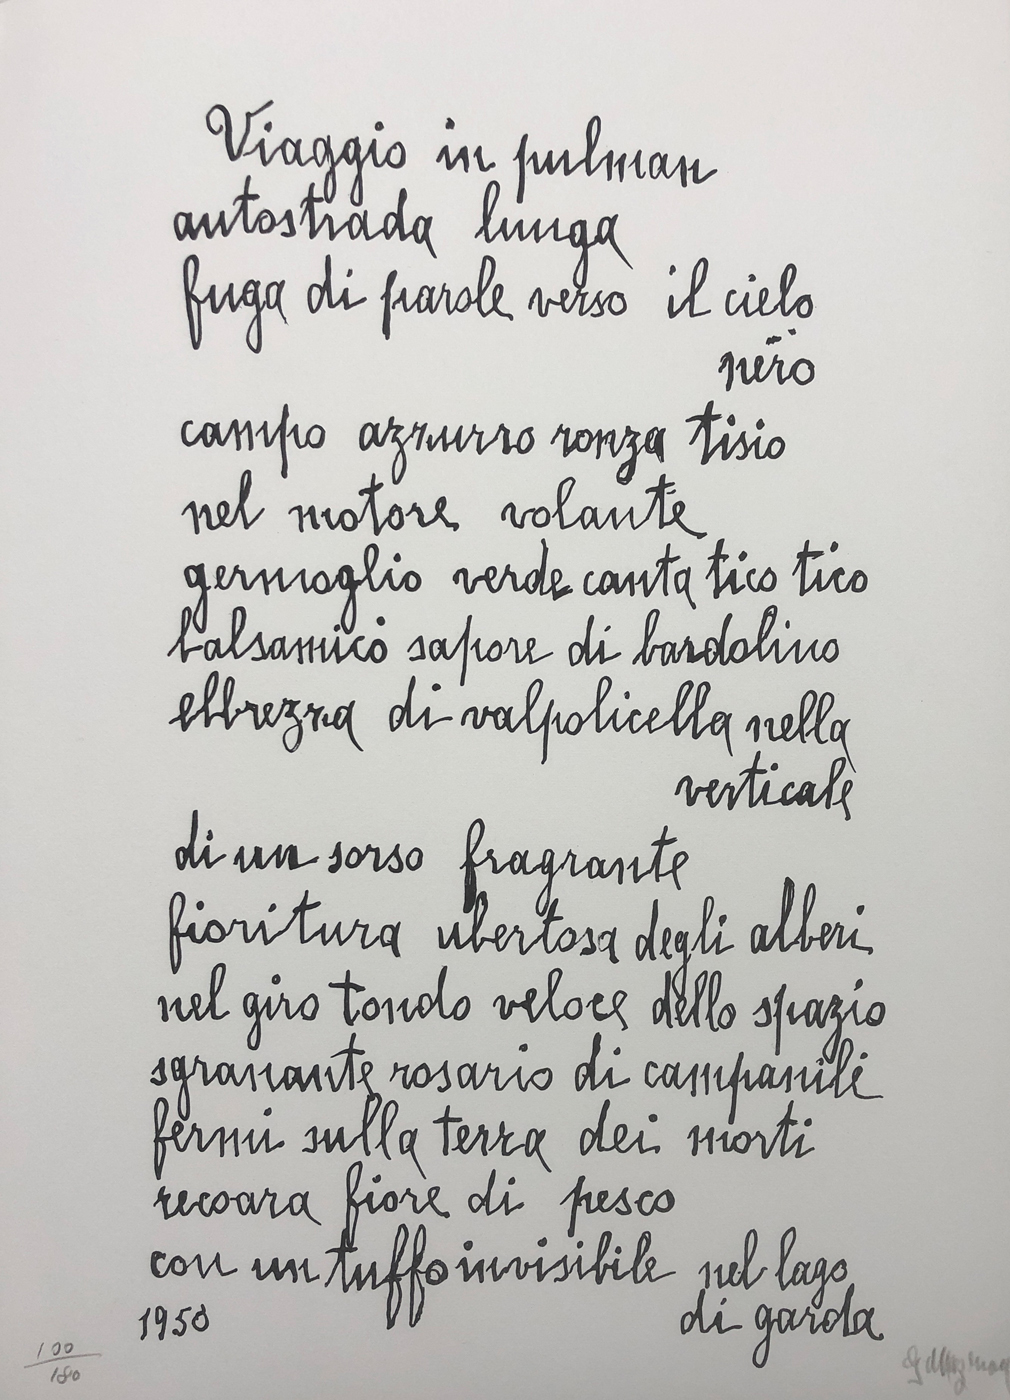 Viaggio in pulman
autostrada lunga
fuga di parole verso il cielo
nero
campo azzurro ronza tisio
nel motore volante
germoglio verde canta tico tico
balsamico sapore di bardolino
ebbrezza di valpolicella nella
verticale
di un sorso fragrante
fioritura ubertosa degli alberi
nel giro tondo veloce dello spazio
sgranante rosario di campanili
fermi sulla terra dei morti
recoara fiore di pesco
con un tuffo invisibile nel lago
di garda
1950
100/180